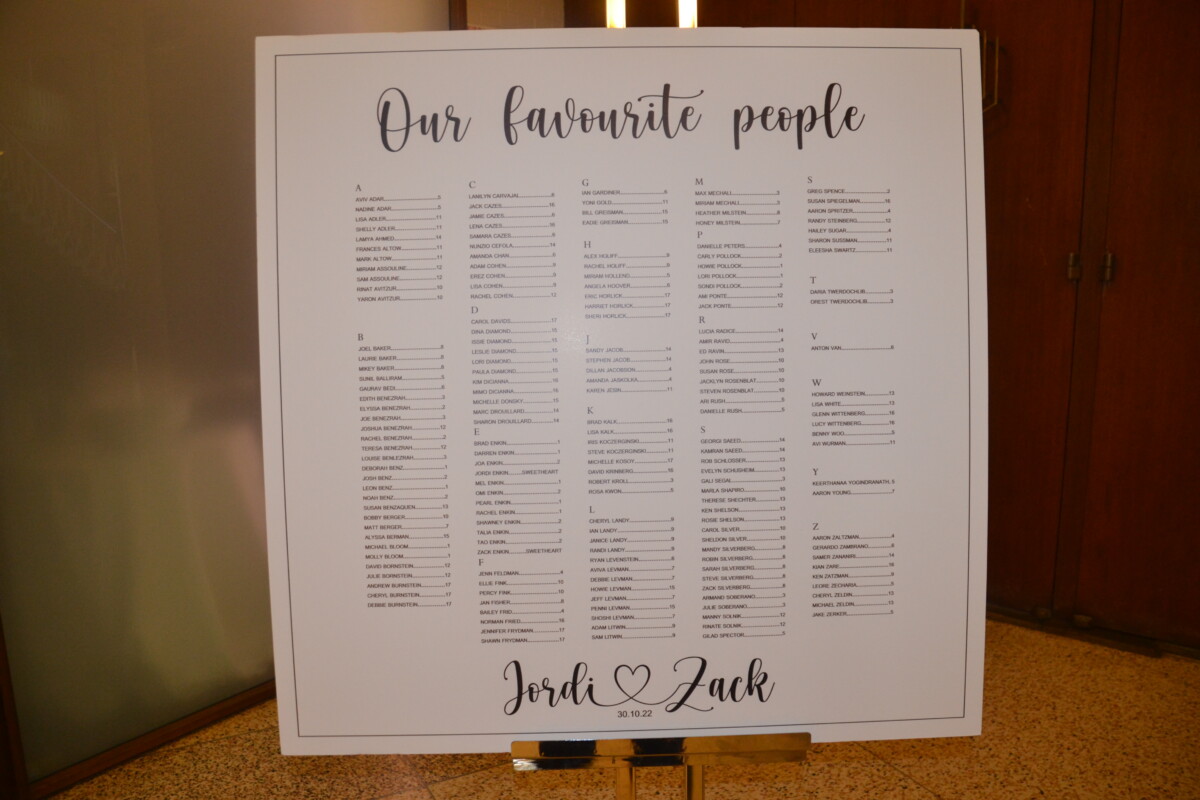 Our favourite people
A
AVIV ADAR 5
NADINE ADAR 5
LISA ADLER 11
SHELLY ADLER 11
LAMYA AHMED 14
FRANCES ALTOW 11
MARK ALTOW 11
MIRIAM ASSOULINE 12
SAM ASSOULINE 12
RINAT AVITZUR 10
YARON AVITZUR 10
B
JOEL BAKER 6
LAURIE BAKER 6
MIKEY BAKER 6
SUNIL BALLIRAM
GAURAV BEDI
EDITH BENEZRAH 3
ELYSSA BENEZRAH 2
JOE BENEZRAH 3
JOSHUA BENEZRAH 12
RACHEL BENEZRAH 2
TERESA BENEZRAH 12
LOUISE BENLEZRAH 3
DEBORAH BENZ 1
JOSH BENZ 2
LEON BENZ 1
NOAH BENZ 2
SUSAN BENZAQUEN 13
BOBBY BERGER 10
MATT BERGER 7
ALYSSA BERMAN 15
MICHAEL BLOOM 1
MOLLY BLOOM 1
DAVID BORNSTEIN 12
JULIE BORNSTEIN 12
ANDREW BURNSTEIN 17
CHERYL BURNSTEIN 17
DEBBIE BURNSTEIN 17
C
LAMILYN CARVAJAL 6
JACK CAZES 16
JAMIE CAZES 6
LENA CAZES 16
SAMARA CAZES 6
NUNZIO CEFOLA 14
AMANDA CHAN
ADAM COHEN
EREZ COHEN
LISA COHEN
RACHEL COHEN 12
D
CAROL DAVIDS 17
DINA DIAMOND 15
ISSIE DIAMOND 15
LESLIE DIAMOND 15
LORI DIAMOND 15
PAULA DIAMOND 15
KIM DICIANNA 16
MIMO DICIANNA 16
MICHELLE DONSKY 15
MARC DROUILLARD 14
SHARON DROUILLARD 14
E
BRAD ENKIN 1
DARREN ENKIN 1
JOA ENKIN 2
JORDI ENKIN SWEETHEART
MEL ENKIN 1
OMI ENKIN 2
PEARL ENKIN 1
RACHEL ENKIN 1
SHAWNEY ENKIN 2
TALIA ENKIN 2
TAO ENKIN 2
ZACK ENKIN SWEETHEART
F
JENN FELDMAN 4
ELLIE FINK 10
PERCY FINK 10
JAN FISHER 8
BAILEY FRID 4
NORMAN FRIED 16
JENNIFER FRYDMAN 17
SHAWN FRYDMAN 17
G
IAN GARDINER 6
YONI GOLD 11
BILL GREISMAN 15
EADIE GREISMAN 15
H
ALEX HOLIFF
RACHEL HOLIFF
MIRIAM HOLLEND
ANGELA HOOVER
ERIC HORLICK 17
HARRIET HORLICK 17
SHERI HORLICK 17
J
SANDY JACOB 14
STEPHEN JACOB 14
DILLAN JACOBSON 4
AMANDA JASKOLKA 4
KAREN JESIN 11
K
BRAD KALK 16
LISA KALK 16
IRIS KOCZERGINSKI 11
STEVE KOCZERGINSKI 11
MICHELLE KOSOY 17
DAVID KRINBERG 16
ROBERT KROLL 3
ROSA KWON 5
L
CHERYL LANDY 9
IAN LANDY 9
JANICE LANDY 9
RANDI LANDY 9
RYAN LEVENSTEIN 6
AVIVA LEVMAN 7
DEBBIE LEVMAN 7
HOWIE LEVMAN 15
JEFF LEVMAN 7
PENNI LEVMAN 15
SHOSHI LEVMAN 7
ADAM LITWIN 9
SAM LITWIN 9
M
MAX MECHALL 3
MIRIAM MECHALL 3
HEATHER MILSTEIN
HONEY MILSTEIN 7
P
DANIELLE PETERS 4
CARLY POLLOCK 2
HOWIE POLLOCK 1
LORI POLLOCK 1
SONDI POLLOCK 2
AMI PONTE 12
JACK PONTE 12
R
LUCIA RADICE 14
AMIR RAVID 4
ED RAVIN 13
JOHN ROSE 10
SUSAN ROSE 10
JACKLYN ROSENBLAT 10
STEVEN ROSENBLAT 10
ARI RUSH 5
DANIELLE RUSH 5
S
GEORGI SAEED 14
KAMRAN SAEED 14
ROB SCHLOSSER 13
EVELYN SCHUSHEIM 13
GALI SEGAL 3
MARLA SHAPIRO 10
THERESE SHECHTER 13
KEN SHELSON 13
ROSIE SHELSON 13
CAROL SILVER 10
SHELDON SILVER 10
MANDY SILVERBERG 8
ROBIN SILVERBERG 8
SARAH SILVERBERG 8
STEVE SILVERBERG 8
ZACK SILVERBERG 8
ARMAND SOBERANO 3
JULIE SOBERANO 3
MANNY SOLNIK 12
RINATE SOLNIK 12
GILAD SPECTOR 5
S
GREG SPENCE 3
SUSAN SPIEGELMAN 16
AARON SPRITZER 4
RANDY STEINBERG 12
HAILEY SUGAR 4
SHARON SUSSMAN 11
ELEESHA SWARTZ 11
T
DARIA TWERDOCHLIB 3
OREST TWERDOCHLIB 3
V
ANTON VAN 6
W
HOWARD WEINSTEIN 13
LISA WHITE 13
GLENN WITTENBERG 16
LUCY WITTENBERG 16
BENNY WOO 5
AVI WURMAN 11
Y
KEERTHANAA YOGINDRANATH, 5
AARON YOUNG 7
Z
AARON ZALTZMAN 4
GERARDO ZAMBRANO 6
SAMER ZANANIRI 14
KIAN ZARE 16
KEN ZATZMAN
LEORE ZECHARIA 5
CHERYL ZELDIN 13
MICHAEL ZELDIN 13
JAKE ZERKER
Jordi Zack
30.10.22